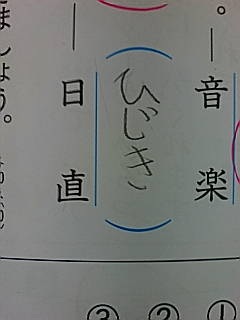 。―音楽
ひじき
―日直
ましょう。
① ② ③